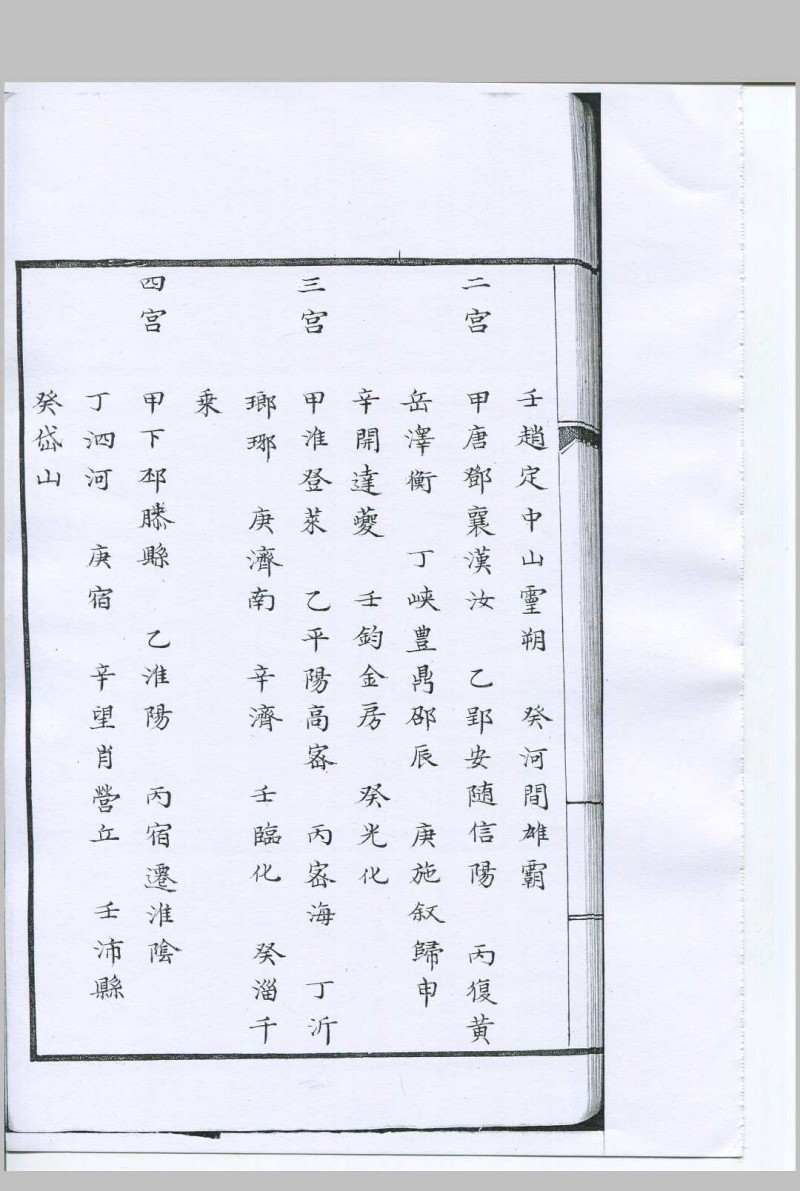 壬趙定中山靈朔　癸河間雄霸
二宮　甲唐鄧襄漢汝　乙郢安随信陽　丙復黄
岳澤衡　丁峽豊鼎邵辰　庚施叙歸申
辛開達夔　壬鈞金房　癸光化
三宮　甲淮登萊　乙平陽高密　丙密海　丁沂
瑯琊　庚濟南　辛濟　壬臨化　癸淄千
乘
四宮　甲下邳滕縣　乙淮陽　丙宿遷淮陰
丁泗河　庚宿　辛望肖營丘　壬沛縣
癸岱山